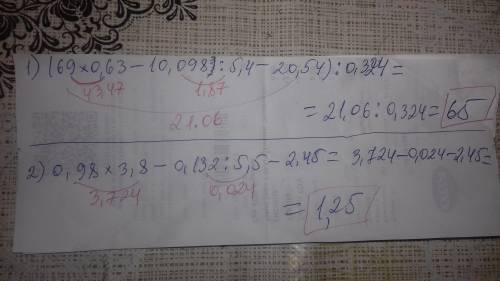 1) (69×0,63-10,098):5,4-20,54):0,324=
43,47 1,87
21.06
=21,06:0,324=65
2) 0,98×3,8-0,132:5,5-2,45= 3,724-0,024-2,45=
3,724 0,024
=1,25